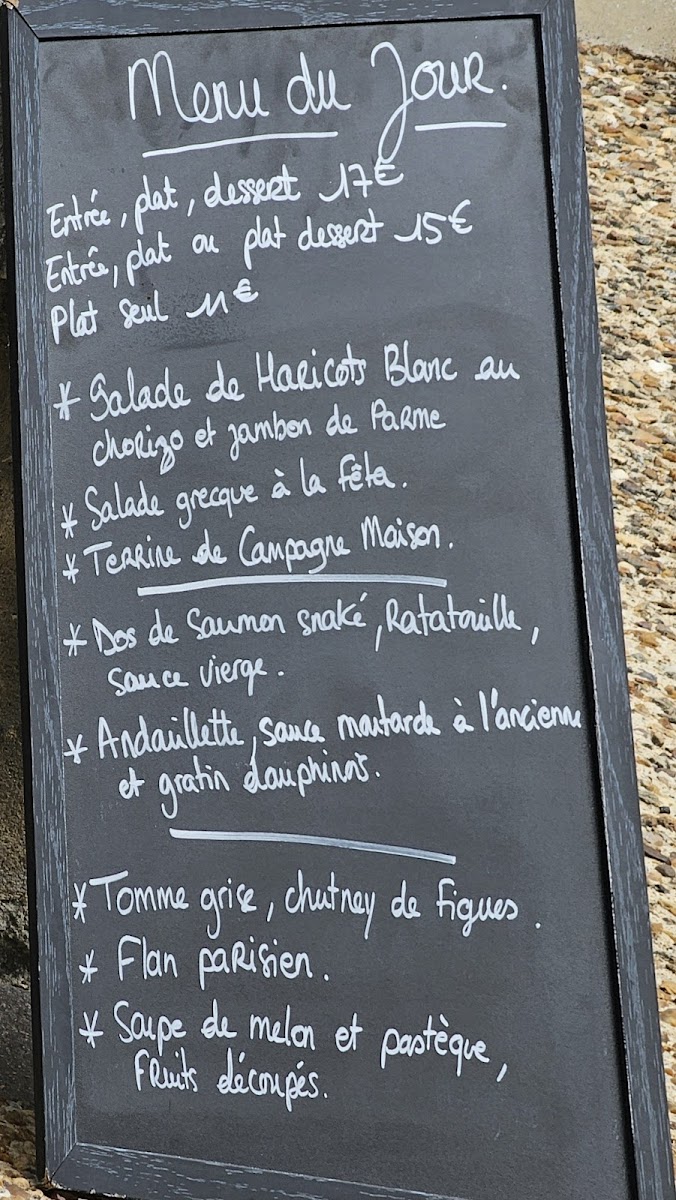 Menu du Jour.
Entrée, plat, dessert 17€
Entrée, plat ou plat dessert 15€
Plat seul 11€
* Salade de Haricots Blanc au
chorizo et jambon de Parme
* Salade grecque à la fêta.
* Terrine de Campagne Maison.
* Dos de Saumon snaké, Ratatouille,
sauce vierge.
* Andouillette, sauce moutarde à l'ancienne
et gratin dauphinois.
* Tomme grise, chutney de figues.
* Flan parisien.
* Soupe de melon et pastèque,
fruits découpés.